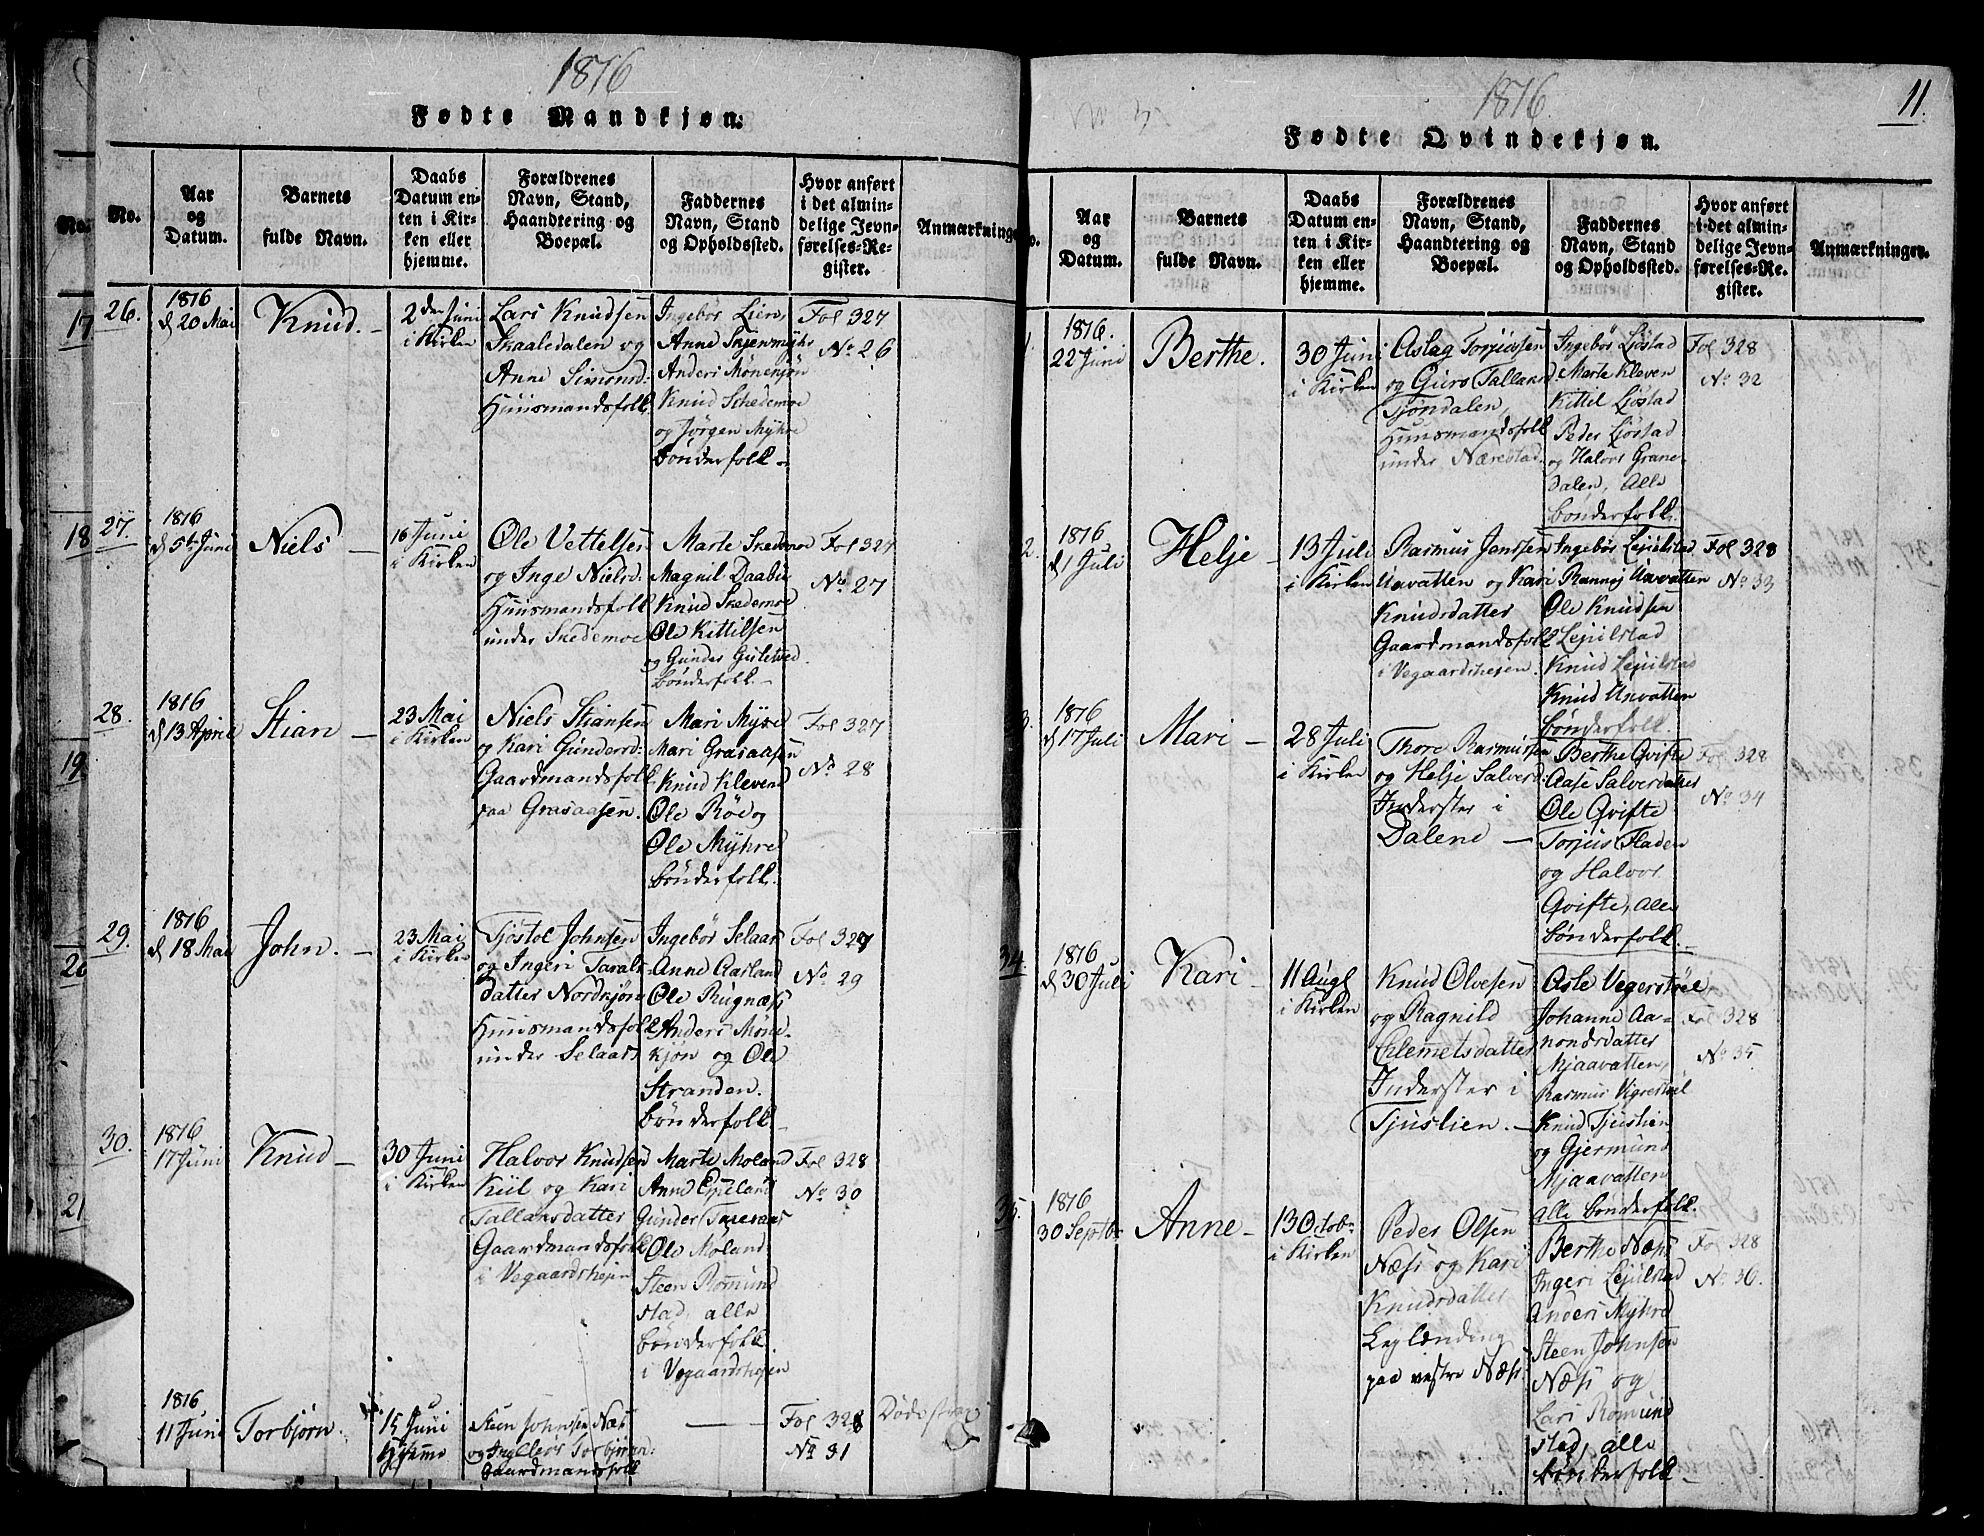 1816
Fødte Mandkjøn.
No.
Aar
og
Datum.
Barnets
fulde Navn.
Daabs
Datum en-
ten i Kir-
ken eller
hjemme.
Forældrenes
Navn, Stand,
Haandtering og
Boepæl.
Faddernes
Navn, Stand
og Opholdssted.
Hvor anført
i det almin-
delige Jevn-
førelses-Re-
gister.
Anmærkninge
26.
1816
d 20 Mai
Knud.
2 den Juni
i Kirken
Lars Knudsen
Skaaledalen og
Anne Simonsd:
Huusmandsfolk
Ingebør Lien,
Anne
Anders Mønekjøn
Knud Schedemoe
og Jørgen Myhre
bønderfolk
Fol 327
No 26
27.
1816
d 5te Juni
Niels
16 Juni
i Kirken
Ole Vettelsen
og Inge Nielsd:
Huusmandsfolk
under Skedemoe
Marte Skedemoe
Magnil Daabu
Knud Skedemoe
Ole Kittilsen
og Gunder
bønderfolk
Fol 327
No 27
28.
1816
d 13 April
Stian
23 Mai
i Kirken
Niels Stiansen
og Kari Gundersd:
Gaardmandsfolk
paa Grasaasen.
Mari Myre
Mari Grasaasen
Knud Kleven
Ole Røe og
Ole Myhre
bønderfolk.
Fol 327
No 28
29.
1816
d 18 Mai
John.
23 Mai
i Kirken
Tjøstol Johnsen
og Ingeri Tarals-
datter Nordkjøn
Huusmandsfolk
under Selaas
Ingebør Selaas
Anne Aasland
Ole Rugnæss
Anders Møne-
kjøn og Ole
Stranden.
bønderfolk
Fol 327
No 29
30.
1816
17 Juni
Knud
30 Juni
i Kirken
Halvor Knudsen
Kiil og Kari
Tallansdatter
Gaardmandsfolk
i Vegaardshejen
Marte Moland
Anne Espeland
Gunder
Ole Moland
Steen Romund
stad, alle
bønderfolk
i Vegaardshejen
Fol 328
No 30
1816
11 Juni
Torbjørn.
15 Juni
Hjemme
Steen Johnsen Næs
og Ingebor Torbjørnd:
Gaardmandsfolk
Fol 328
No 31
Døde strax
1816
11.
Fødte Qvindekjøn.
Aar
og
Datum.
Barnets
fulde Navn.
Daabs
Datum en-
ten i Kir-
ken eller
hjemme.
Forældrenes
Navn, Stand,
Haandtering og
Boepæl.
Faddernes
Navn, Stand
og Opholdssted.
Hvor anført
i det almin-
delige Jevn-
førelses-Re-
gister.
Anmærkninger.
1.
1816.
22 Juni
Berthe.
30 Juni
i Kirken
Aslag Torjussen
og Guro Tallaksd.
Tjøndalen,
Huusmandsfolk
under Nærestad.
Ingebør Ljøstad
Marte Kleven
Kittil Ljøstad
Peder Ljøstad
og Halvor Grane-
dalen, Alle
bønderfolk.
Fol 328
No 32
2.
1816
d 1 Juli
Helje
13 Juli
i Kirken
Rasmus Jenssen
Uavatten og Kari
Knudsdatter
Gaardmandsfolk
i Vegaardshejen.
Ingebør Lejulstad
Rannej Uavatten
Ole Knudsen
Lejulstad
Knud Lejulstad
Knud Uavatten
bønderfolk.
Fol 328
No 33
3.
1816
d 17 Juli
Mari
28 Juli
i Kirken
Thore Rasmussen
og Helje Salvesd:
Inderster i
Dalene
Berthe Qvifte
Aase Salversdatter
Ole Qvifte
Torjus Fladen
og Halvor
Qvifte, alle
bønderfolk
Fol 328
No 34
34.
1816
d 30 Juli
Kari
11 Augt
i Kirken
Knud Olvesen
og Ragnild
Clemetsdatter
Inderster i
Tjuslien.
Asle Vegerstøel
Johanne Aa-
nondsdatter
Mjaavatten,
Rasmus Vigrestøel
Knud Tjuslien
og Gjermund
Mjaavatten
alle bønderfolk.
Fol 328
No 35
35.
1816
30 Septbr
Anne
13 Octobr
i Kirken
Peder Olsen
Næss og Kari
Knudsdatter
Leylænding
paa vestre Næss
Berthe Næss
Ingeri Lejulstad
Anders Myhre
Steen Johnsen
Næss og
Lars Romund
stad, alle
bønderfolk
Fol 328
No 36.
No.
17
18
19
20
21